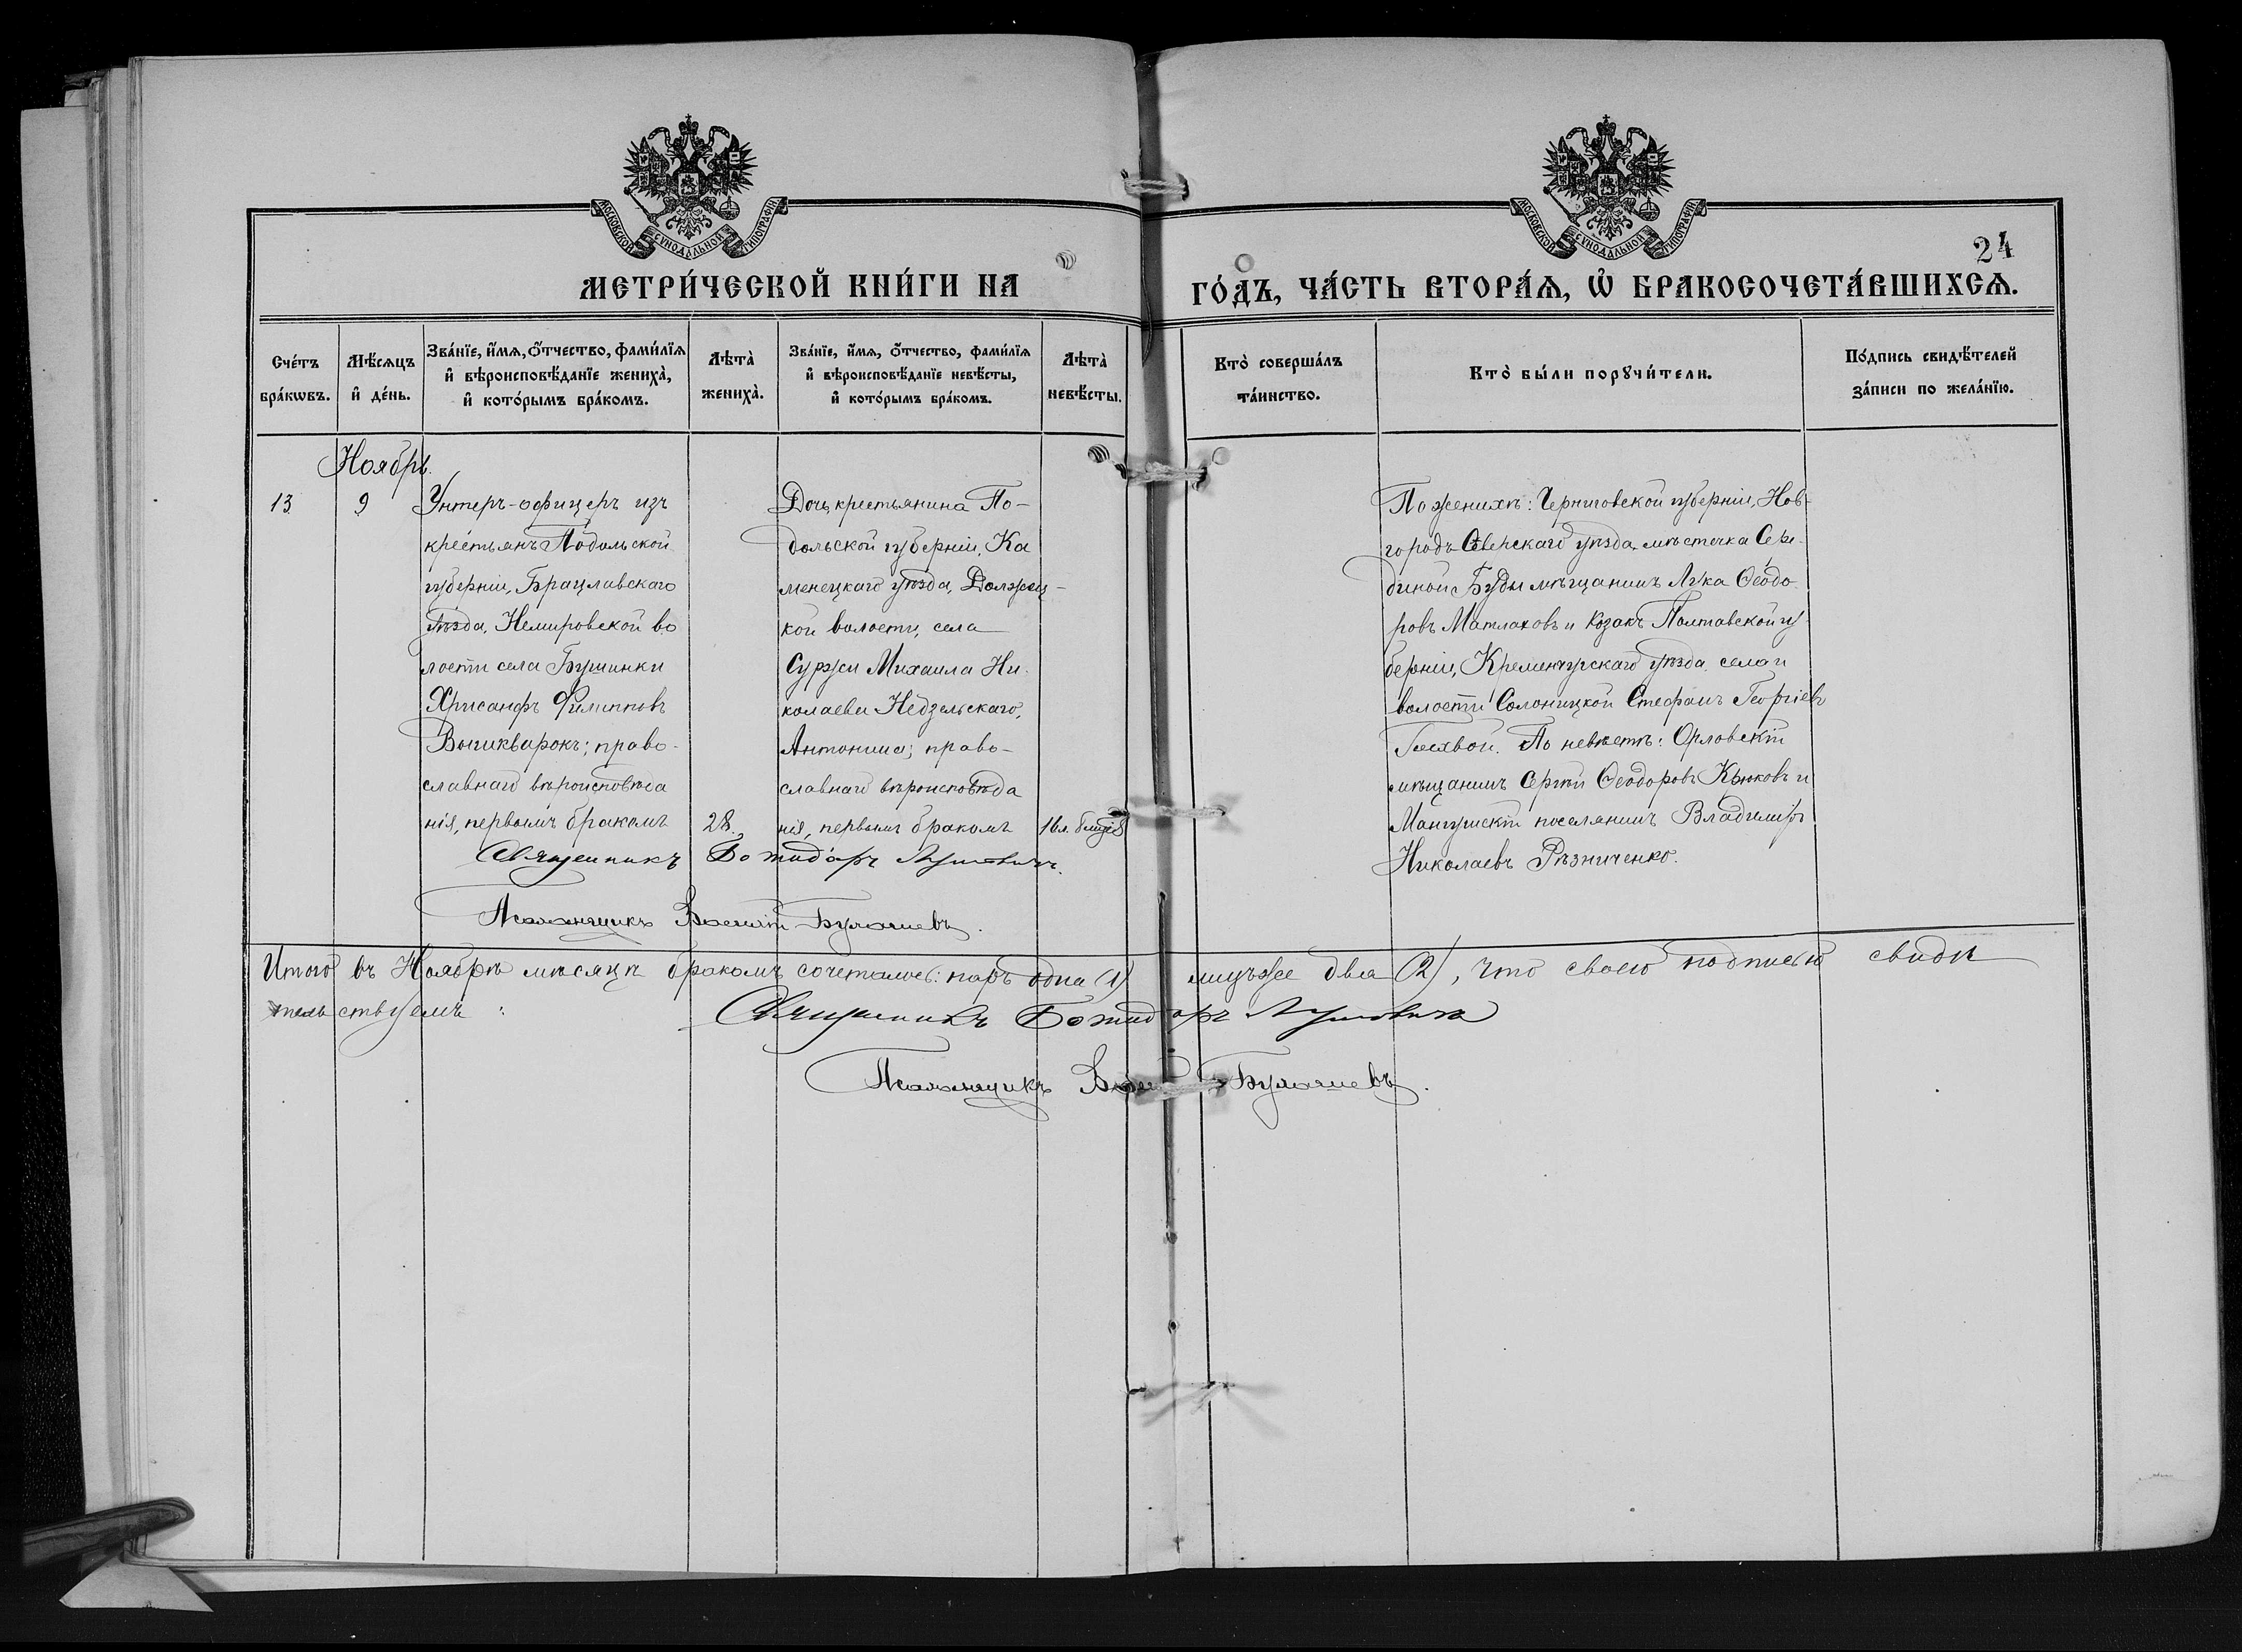 МОСКОВСКОЙ СѴНОДАЛЬНОЙ ТИПОГРАФІИ
МОСКОВСКОЙ СѴНОДАЛЬНОЙ ТИПОГРАФІИ
24
МЕТРИ́ЧЕСКОЙ КНИ́ГИ НА
ГО́ДЪ, ЧА́СТЬ ВТОРА́Ѧ, Ѡ҆ БРАКОСОЧЕТА́ВШИХСѦ.
Сче́тъ бра́кѡвъ.
Мѣ́сѧцъ и҆ де́нь.
Зва́нїе, и҆́мѧ, ѻ҆́тчество, фами́лїѧ
и҆ вѣроисповѣ́данїе жениха̀,
и҆ кото́рымъ бра́комъ.
Лѣта̀ жениха̀.
Зва́нїе, и҆́мѧ, ѻ҆́тчество, фами́лїѧ
и҆ вѣроисповѣ́данїе невѣ́сты,
и҆ кото́рымъ бра́комъ.
Лѣта̀ невѣ́сты.
Кто̀ соверша́лъ
та́инство.
Кто̀ бы́ли порꙋчи́тели.
По́дпись свидѣ́телей
за́писи по жела́нїю.
Ноябрь.
13
9
Унтеръ-офицеръ изъ
крестьянъ Подольской
губерніи, Брацлавскаго
уѣзда, Немировской во
лости села Бушинки
Хрисанфъ Филипповъ
православнаго вѣроисповѣда
нія, первымъ бракомъ
28.
Дочь крестьянина По-
дольской губерніи, Ка
менецкаго уѣзда, Должец-
кой волости, села
Суржи Михаила Ни-
колаева Недзельскаго,
Антонина; право-
славнаго вѣроисповѣда
нія, первымъ бракомъ
16 л.
По женихѣ: Черниговской губерніи, Нов-
городъ Сѣверскаго уѣзда, мѣстечка Сере-
диной Буды мѣщанинъ Лука Ѳеодо
ровъ Матлаховъ и козакъ Полтавской гу-
берніи, Кременчугскаго уѣзда, села и
волости Солоницкой Стефанъ Георгіевъ
По невѣстѣ: Орловскій
мѣщанинъ Сергѣй Ѳеодоровъ Крюковъ и
Мангушскій поселянинъ Владиміръ
Николаевъ Рѣзниченко.
Священникъ Божидаръ
Псаломщикъ Василій
Итого въ Ноябрѣ мѣсяцѣ бракомъ сочетались: паръ одна (1) лицъ же два (2), что своею подписью свидѣ
тельствуемъ:
Священникъ Божидаръ
Псаломщикъ